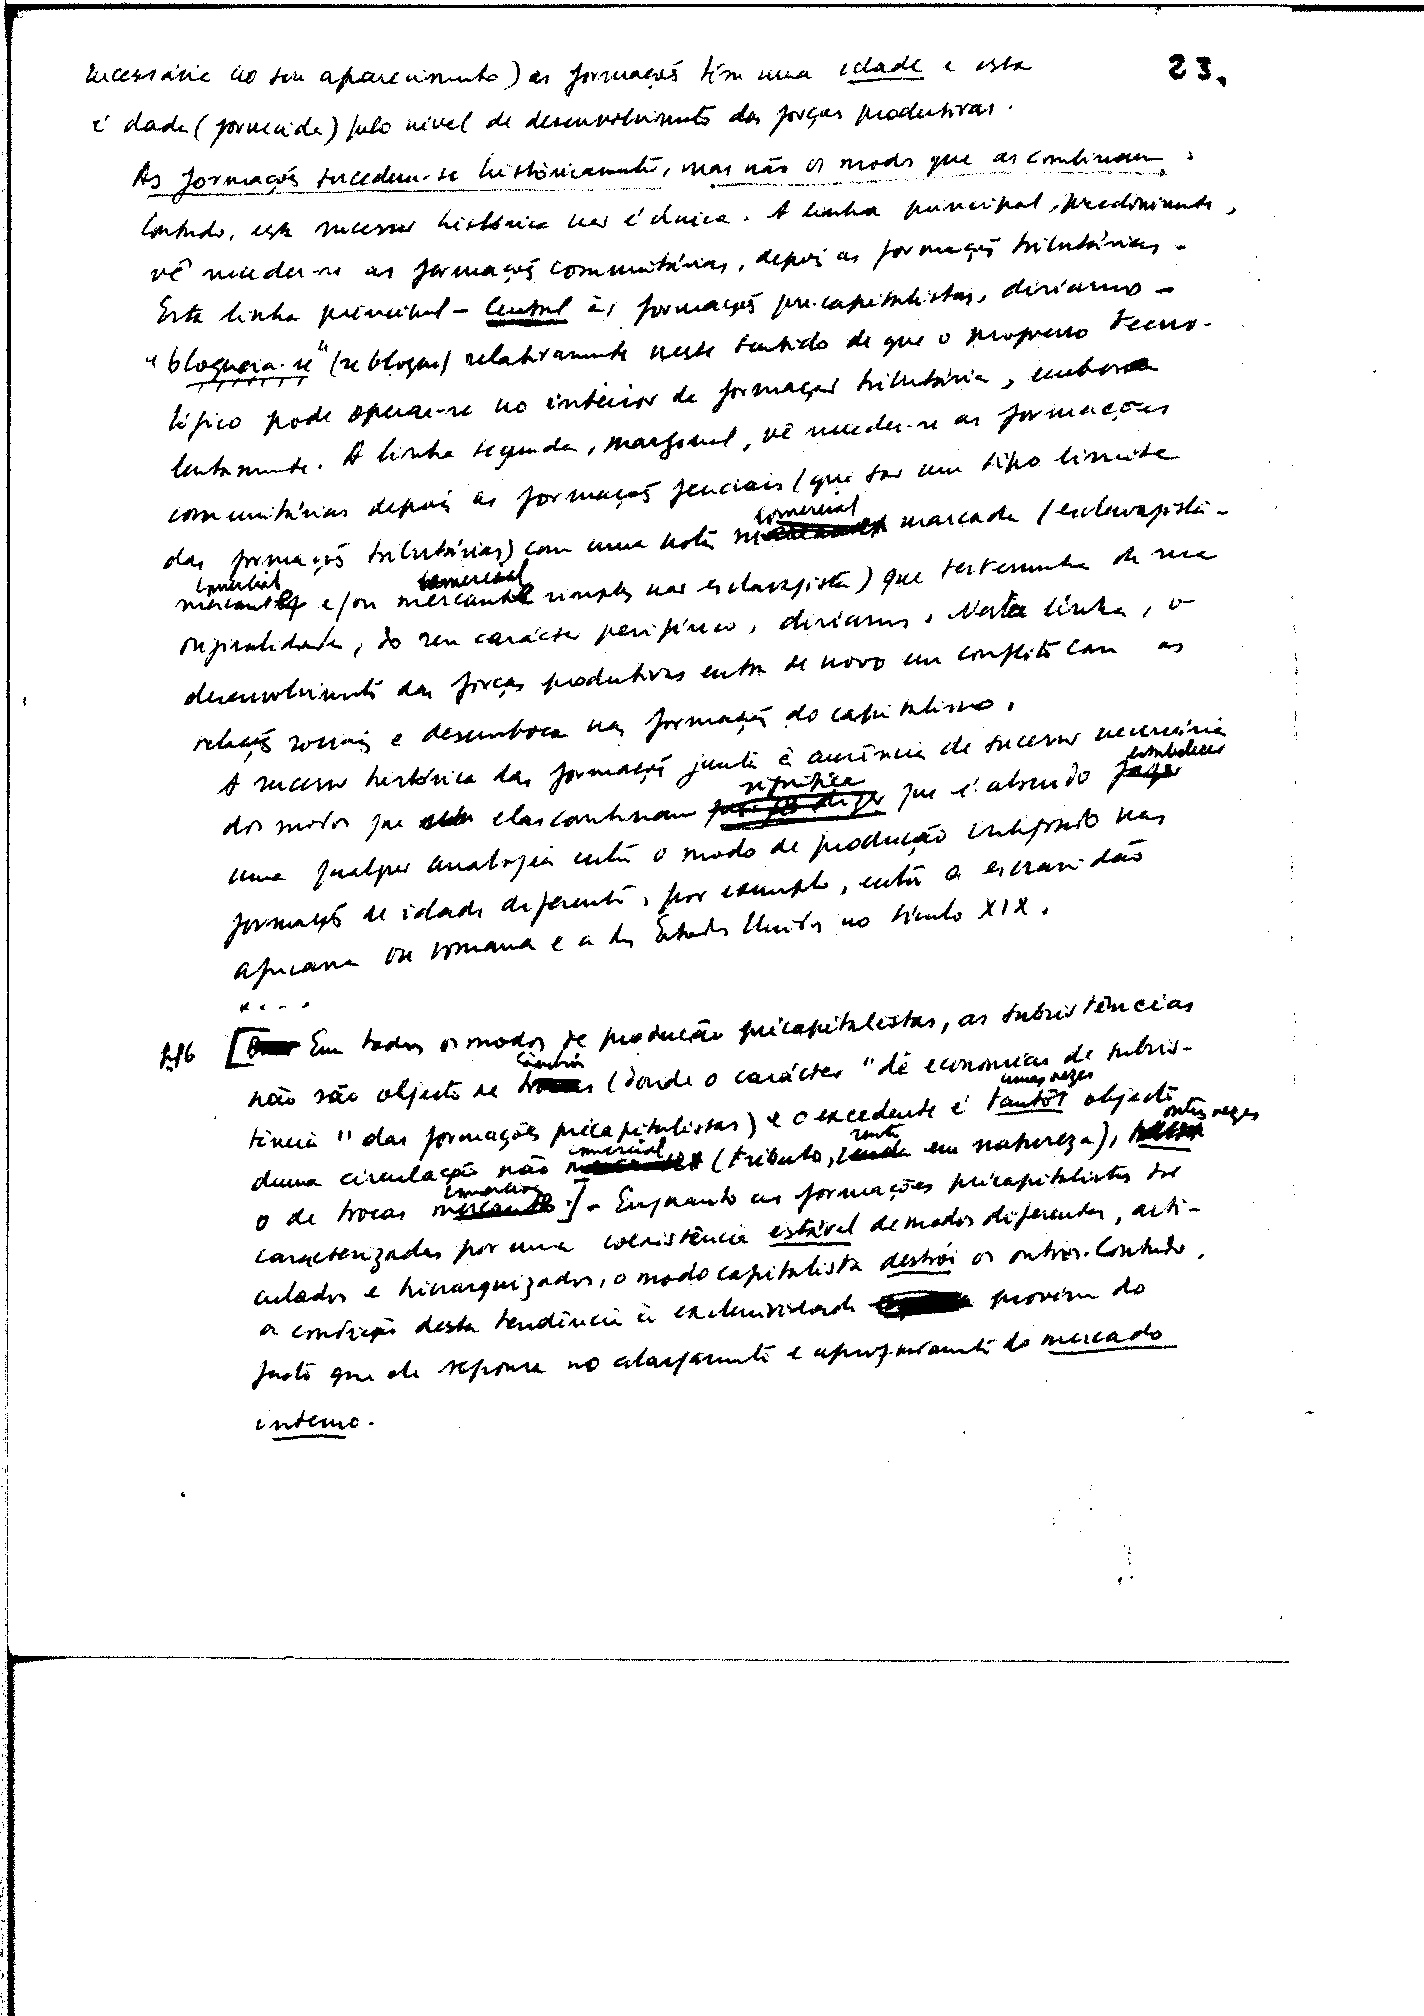 23.
necessária ao seu aparecimento) as formações têm uma idade e esta
é dada (fornecida) pelo nível de desenvolvimento das forças produtivas.
As formações sucedem-se históricamente, mas não os modos que as combinam.
Contudo, esta sucessão histórica não é única. A linha principal, predominante,
vê suceder-se as formações comunitárias, depois as formações tributárias.
Esta linha principal - central às formações precapitalistas, diríamos -
"bloqueia-se" (se bloqua) relativamente neste sentido de que o progresso tecno-
lógico pode operar-se no interior da formação tributária, embora
lentamente. A linha segunda, marginal, vê suceder-se as formações
comunitárias depois as formações feudais (que são um tipo limite
das formações tributárias) com uma nota comercial marcada (esclavagista-
comercial
mercantil e/ou mercantil simples não esclavagista) que testemunha da sua
comercial
originalidade, do seu carácter periférico, diríamos. Nesta linha, o
desenvolvimento das forças produtivas entra de novo em conflito com as
relações sociais e desemboca nas formações do capitalismo.
A sucessão histórica das formações junto à ausência de sucessão necessária
dos modos que elas combinam significa que é absurdo estabelecer
uma qualquer analogia entre o modo de produção integrado nas
formações de idade diferente, por exemplo, entre a escravidão
africana ou romana e a dos Estados Unidos no século XIX.
....
[Em todos os modos de produção précapitalistas, as subsistências
não são objecto de câmbios (donde o carácter "de economias de subsis-
tência" das formações précapitalistas) e o excedente é tantôt objecto
umas vezes
duma circulação não comercial (tributo, renta em natureza), outras vezes
o de trocas comerciais.] - Enquanto as formações précapitalistas são
caracterizadas por uma coexistência estável de modos diferentes, arti-
culados e hierarquizados, o modo capitalista destrói os outros. Contudo,
a condição desta tendência à exclusividade provém do
facto que ele repousa no alargamento e aprofundamento do mercado
interno.